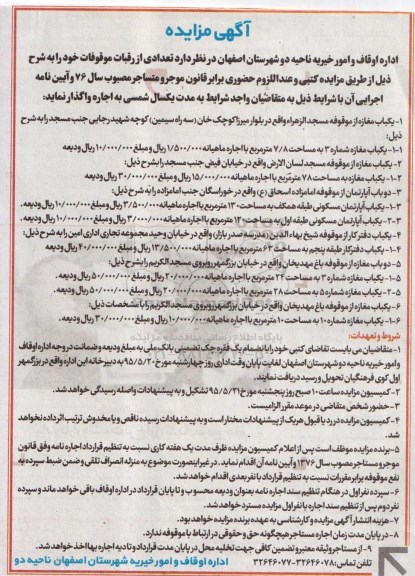 آگهی مزایده
اداره اوقاف و امور خیریه ناحیه دو شهرستان اصفهان در نظر دارد تعدادی از رقبات موقوفات خود را به شرح
ذیل از طریق مزایده کتبی و عنداللزوم حضوری برابر قانون موجر و مستاجر مصوب سال ۷۶ و آیین نامه
اجرایی آن با شرایط ذیل به متقاضیان واجد شرایط به مدت یکسال شمسی به اجاره واگذار نماید:
۱- یکباب مغازه از موقوفه مسجد الزهراء واقع در بلوار میرزا کوچک خان (سه راه سیمین) کوچه شهید رجایی جنب مسجد را به شرح
ذیل:
۱-۱- یکباب مغازه شماره ۳ به مساحت ۷/۸ مترمربع با اجاره ماهیانه ۱/۵۰۰/۰۰۰ ریال و مبلغ ۱۰/۰۰۰/۰۰۰ ریال ودیعه
۲- یکباب مغازه از موقوفه مسجد لسان الارض واقع در خیابان فیض جنب مسجد را بشرح ذیل:
۱-۲- یکباب مغازه به مساحت ۷۸ مترمربع با اجاره ماهیانه ۱۵/۰۰۰/۰۰۰ ریال و مبلغ ۳۰/۰۰۰/۰۰۰ ریال ودیعه
۳- دو باب آپارتمان از موقوفه امامزاده اسحاق (ع) واقع در خوراسگان جنب امامزاده را به شرح ذیل:
۱-۳- یکباب آپارتمان مسکونی طبقه همکف به مساحت ۱۳۰ مترمربع با اجاره ماهیانه ۳/۵۰۰/۰۰۰ ریال و مبلغ ۱۰/۰۰۰/۰۰۰ ریال ودیعه.
۲-۳- یکباب آپارتمان مسکونی طبقه اول به مساحت ۱۲۰ مترمربع با اجاره ماهیانه ۳/۰۰۰/۰۰۰ ریال و مبلغ ۱۰/۰۰۰/۰۰۰ ریال ودیعه.
۴- یکباب دفتر کار از موقوفه شیخ بهاء الدین (مدرسه صدر بازار) واقع در خیابان وحید مجموعه تجاری اداری امین را به شرح ذیل:
۱-۴- یکباب دفتر کار طبقه پنجم به مساحت ۶۳ مترمربع با اجاره ماهیانه ۱۳/۵۰۰/۰۰۰ ریال و مبلغ ۴۰/۰۰۰/۰۰۰ ریال ودیعه.
۵- دو باب مغازه از موقوفه باغ مهدیخان واقع در خیابان بزرگمهر روبروی مسجد الکریم را بشرح ذیل:
۱-۵- یکباب مغازه شماره ۳ به مساحت ۲۴ مترمربع با اجاره ماهیانه ۲۰/۰۰۰/۰۰۰ ریال و مبلغ ۵۰/۰۰۰/۰۰۰ ریال ودیعه.
۲-۵- یکباب مغازه شماره ۵ به مساحت ۲۸ مترمربع با اجاره ماهیانه ۲۰/۰۰۰/۰۰۰ ریال و مبلغ ۵۰/۰۰۰/۰۰۰ ریال ودیعه.
۶- یکباب مغازه از موقوفه باغ مهدیخان واقع در خیابان بزرگمهر روبروی مسجد الکریم را با مشخصات ذیل:
۱-۶- یکباب مغازه شماره ۱۰ به مساحت ۱۰ مترمربع با اجاره ماهیانه ۱۰/۰۰۰/۰۰۰ ریال و مبلغ ۳۰/۰۰۰/۰۰۰ ریال ودیعه.
شروط و تعهدات:
۱- متقاضیان می بایست تقاضای کتبی خود را با انضمام یک فقره چک تضمینی بانک ملی به مبلغ ودیعه و ضمانت در وجه اداره اوقاف
و امور خیریه ناحیه دو شهرستان اصفهان لغایت پایان وقت اداری روز چهارشنبه مورخ ۹۵/۵/۲۰ به دبیرخانه این اداره واقع در بزرگمهر
اول کوی فرهنگیان تحویل و رسید دریافت نمایند.
۲- کمیسیون مزایده ساعت ۱۰ صبح روز پنجشنبه مورخ ۹۵/۵/۲۱ تشکیل و به پیشنهادات واصله رسیدگی خواهد شد.
۳- حضور شخص متقاضی در موعد مقرر الزامیست.
۴- کمیسیون مزایده در رد یا قبول هریک از پیشنهادات مختار است و به پیشنهادات رسیده ناقص و یا مخدوش ترتیب اثر داده نخواهد
شد.
۵- برنده مزایده موظف است پس از اعلام کمیسیون مزایده ظرف مدت یک هفته کاری نسبت به تنظیم قرارداد اجاره نامه وفق قانون
موجر و مستاجر مصوب سال ۱۳۷۶ و آیین نامه آن اقدام نماید. در غیر اینصورت موضوع به منزله انصراف تلقی و ضمن ضبط سپرده به
نفع موقوفه برابر مقررات نسبت به تنظیم قرارداد با نفر بعدی اقدام خواهد شد.
۶- سپرده نفر اول در هنگام تنظیم سند اجاره نامه بعنوان ودیعه محسوب و تا پایان قرارداد در اداره اوقاف باقی خواهد ماند و سپرده
نفر دوم پس از تنظیم سند اجاره با نفر اول مزایده مسترد خواهد شد.
۷- هزینه انتشار آگهی مزایده و کارشناسی به عهده برنده مزایده خواهد بود.
۸- در پایان مدت زمان اجاره مستاجر هیچگونه حق و حقوقی در ارتباط با موقوفه ندارد.
۹- از مستاجر وثیقه معتبر و تضمین کافی جهت تخلیه محل در پایان مدت قرارداد و تادیه اجاره بها اخذ خواهد شد.
تلفن تماس: ۳۲۶۴۶۰۷۸-۳۲۶۴۶۰۷۷
اداره اوقاف و امور خیریه شهرستان اصفهان ناحیه دو